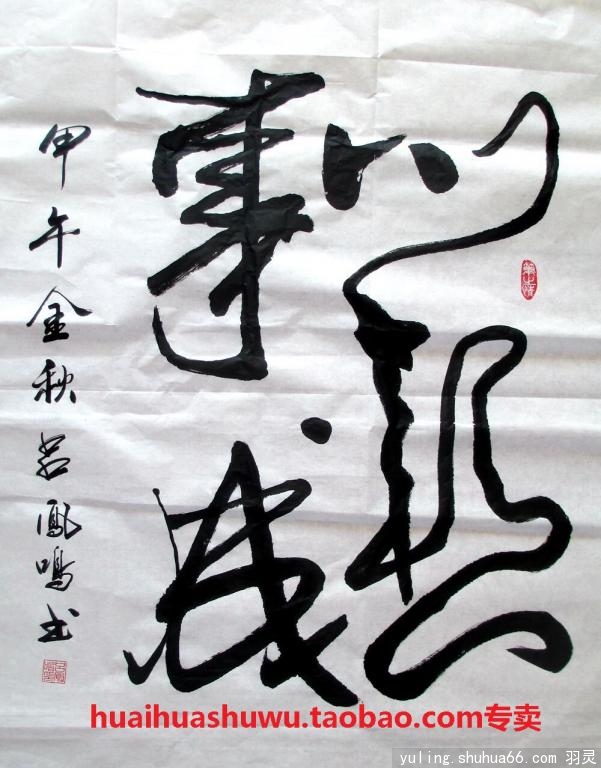 心想
事成
甲午金秋吕鳳鳴书
huaihuashuwu.taobao.com专卖
yuling.shuhua66.com 羽灵